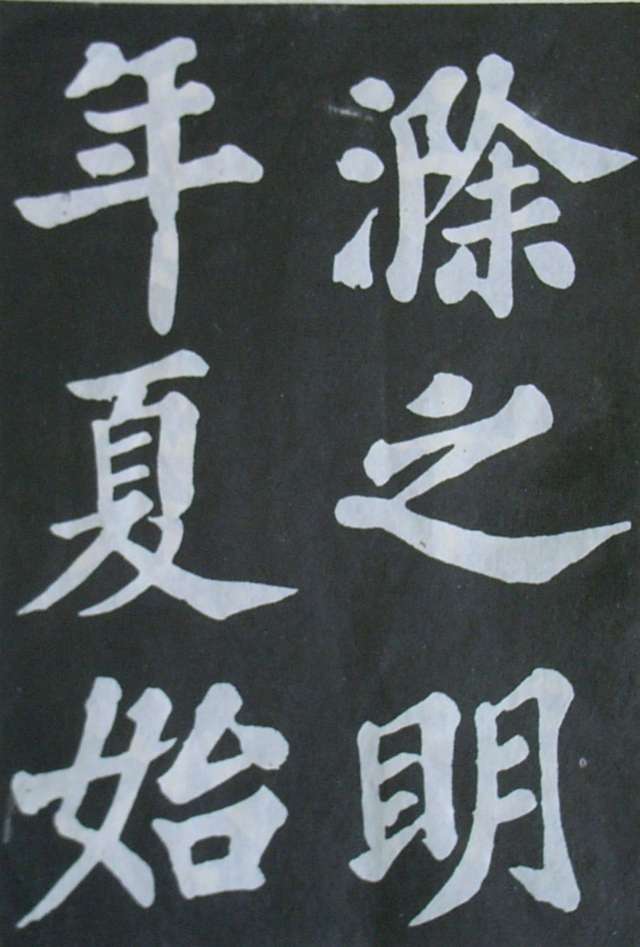 滁之明
年夏始